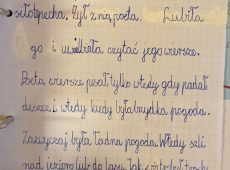 Żył z nią poeta Lubiła
go i uwielbiała czytać jego wiersze.
Poeta wiersze pisał tylko wtedy gdy padał
deszcz i wtedy kiedy była brzydka pogoda.
Zazwyczaj była ładna pogoda. Wtedy szli
nad jezioro lub do lasu.